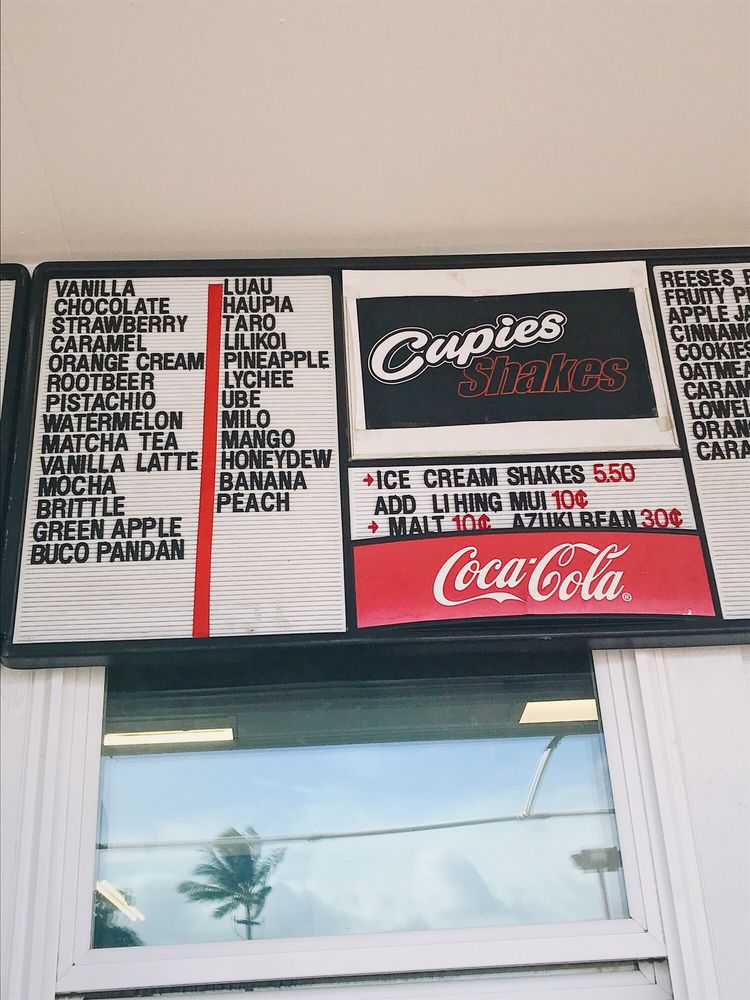 VANILLA
CHOCOLATE
STRAWBERRY
CARAMEL
ORANGE CREAM
ROOTBEER
PISTACHIO
WATERMELON
MATCHA TEA
VANILLA LATTE
MOCHA
BRITTLE
GREEN APPLE
BUCO PANDAN
LUAU
HAUPIA
TARO
LILIKOI
PINEAPPLE
LYCHEE
UBE
MILO
MANGO
HONEYDEW
BANANA
PEACH
Cupies
Shakes
ICE CREAM SHAKES 5.50
ADD LI HING MUI 10¢
MALT 10¢ AZUKI BEAN 30¢
Coca-Cola®
REESES
FRUITY
APPLE
COOKIES